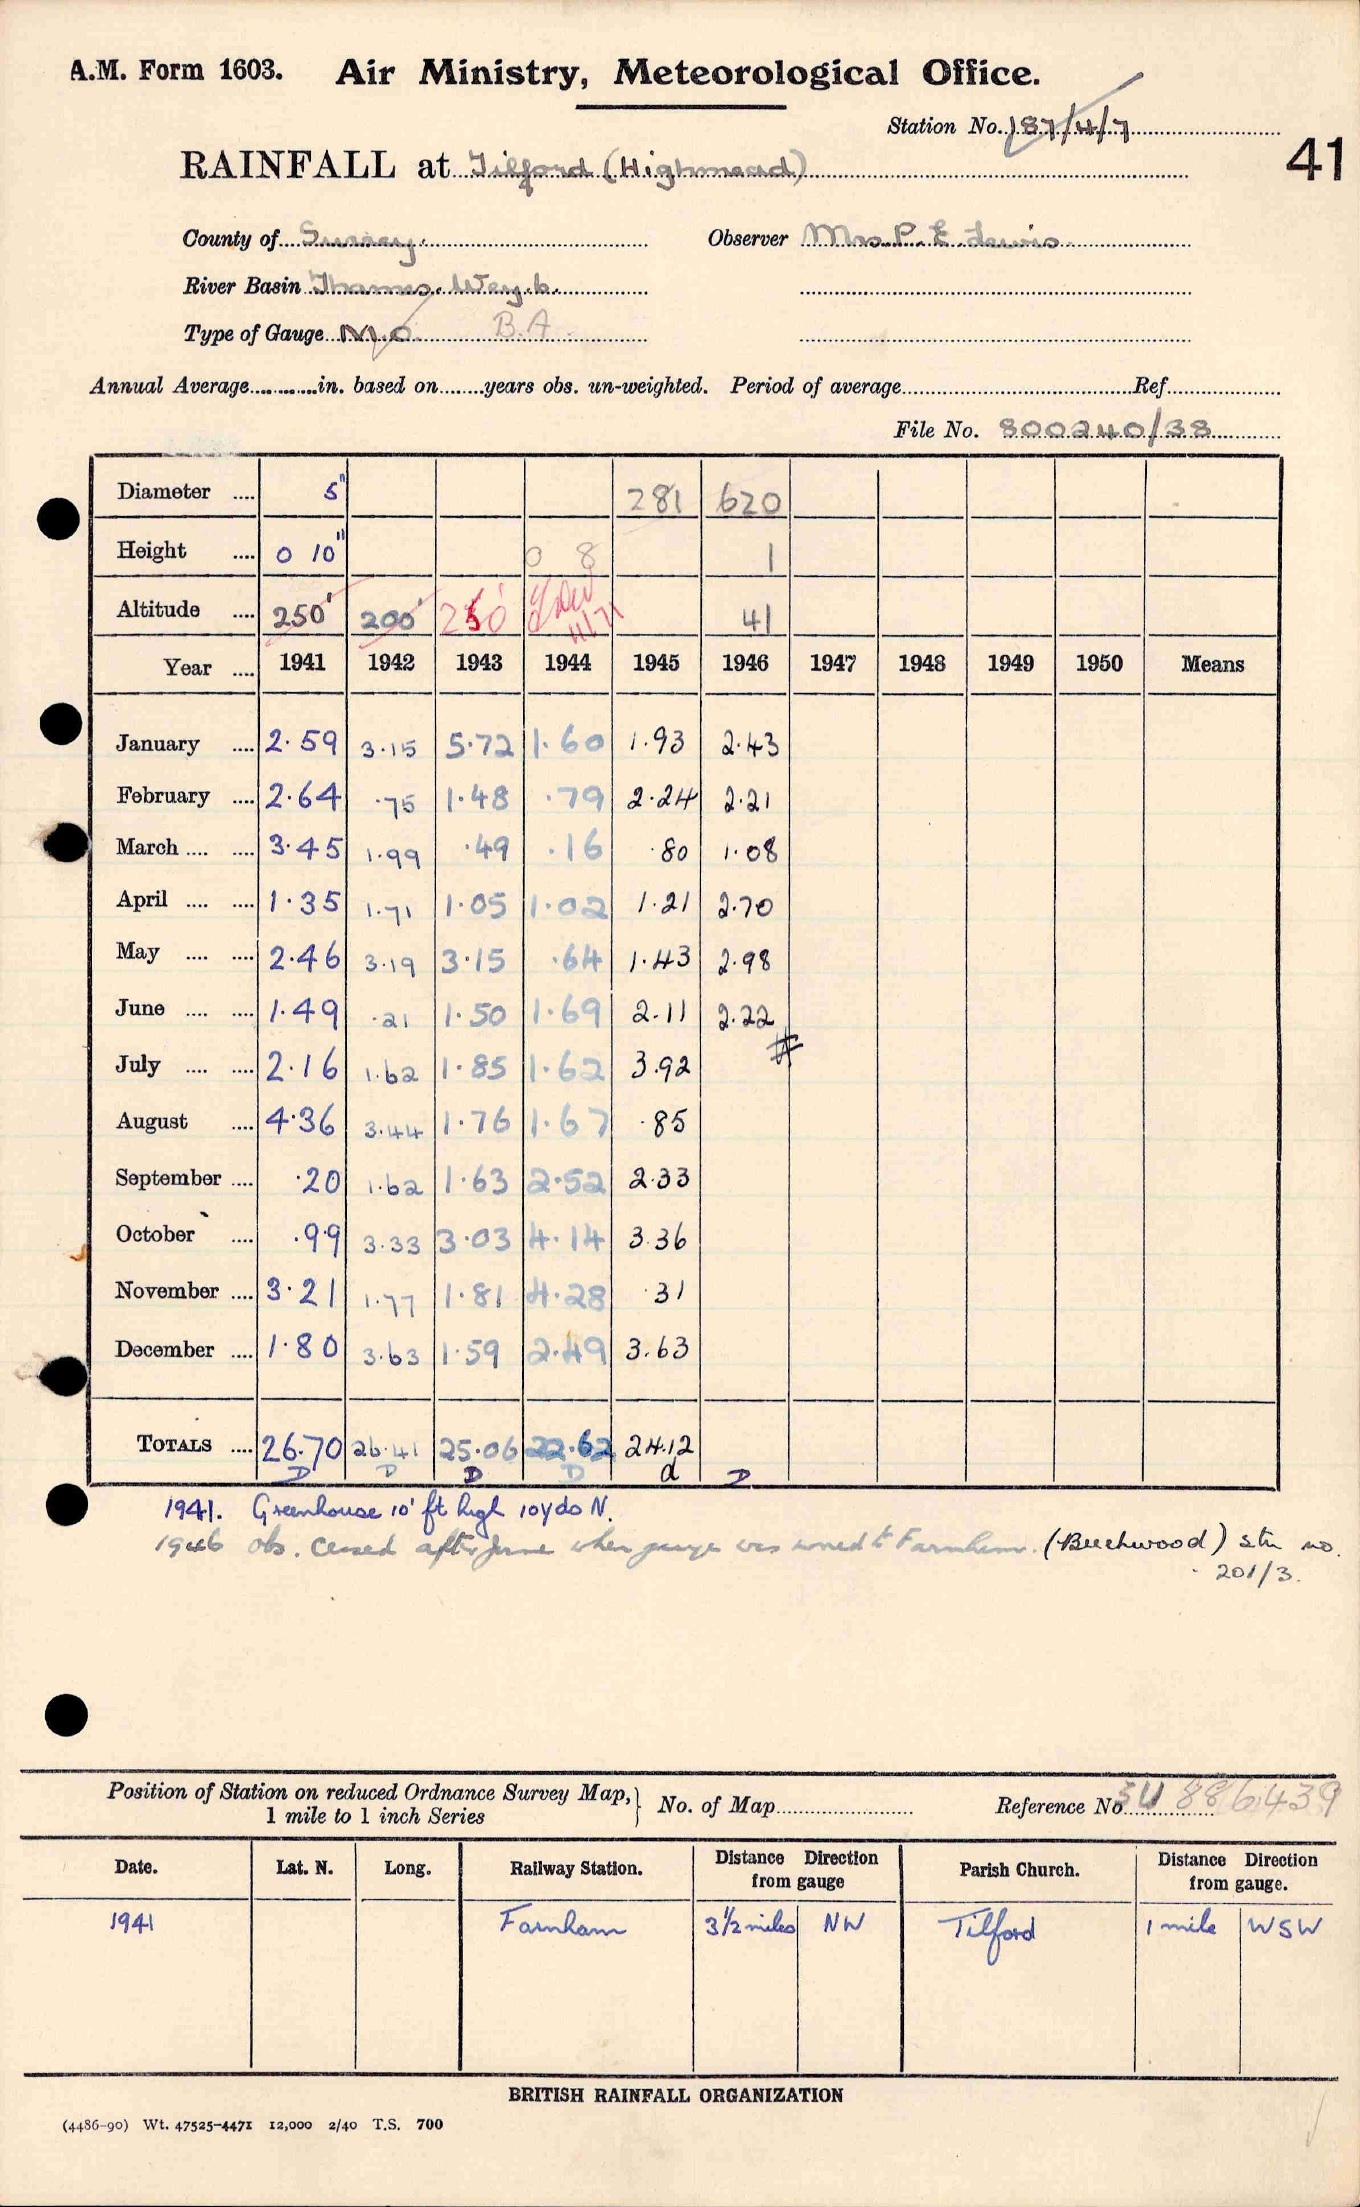 A.M. Form 1603. Air Ministry, Meteorological Office.
Station No. 187/4/7
41
RAINFALL at Tilford (Highmead)
County of Surrey. Observer Mrs. P. E. Lewis
River Basin Thames. Wey. b.
Type of Gauge M.O. B.A.
Annual Average............in. based on.......years obs. un-weighted. Period of average Ref
File No. 800240/38
Diameter .... 5" 281 620
Height .... 0 10" 0 8 1
Altitude .... 250' 200' 250' 11/71 41
Year .... 1941 1942 1943 1944 1945 1946 1947 1948 1949 1950 Means
January .... 2.59 3.15 5.72 1.60 1.93 2.43
February .... 2.64 .75 1.48 .79 2.24 2.21
March .... .... 3.45 1.99 .49 .16 .80 1.08
April .... .... 1.35 1.71 1.05 1.02 1.21 2.70
May .... .... 2.46 3.19 3.15 .64 1.43 2.98
June .... .... 1.49 .21 1.50 1.69 2.11 2.22
July .... .... 2.16 1.62 1.85 1.62 3.92
August .... 4.36 3.44 1.76 1.67 .85
September .... .20 1.62 1.63 2.52 2.33
October .... .99 3.33 3.03 4.14 3.36
November .... 3.21 1.77 1.81 4.28 .31
December .... 1.80 3.63 1.59 2.49 3.63
TOTALS .... 26.70 26.41 25.06 22.62 24.12
D D D D d D
1941. Greenhouse 10' ft high 10yds N.
1946 obs. ceased after June when gauge was moved to Farnham. (Beechwood) stn no.
201/3.
Position of Station on reduced Ordnance Survey Map, 1 mile to 1 inch Series No. of Map Reference No SU 886439
Date. Lat. N. Long. Railway Station. Distance Direction from gauge Parish Church. Distance Direction from gauge.
1941 Farnham 3½ miles NW Tilford 1 mile WSW
BRITISH RAINFALL ORGANIZATION
(4486-90) Wt. 47525-4471 12,000 2/40 T.S. 700